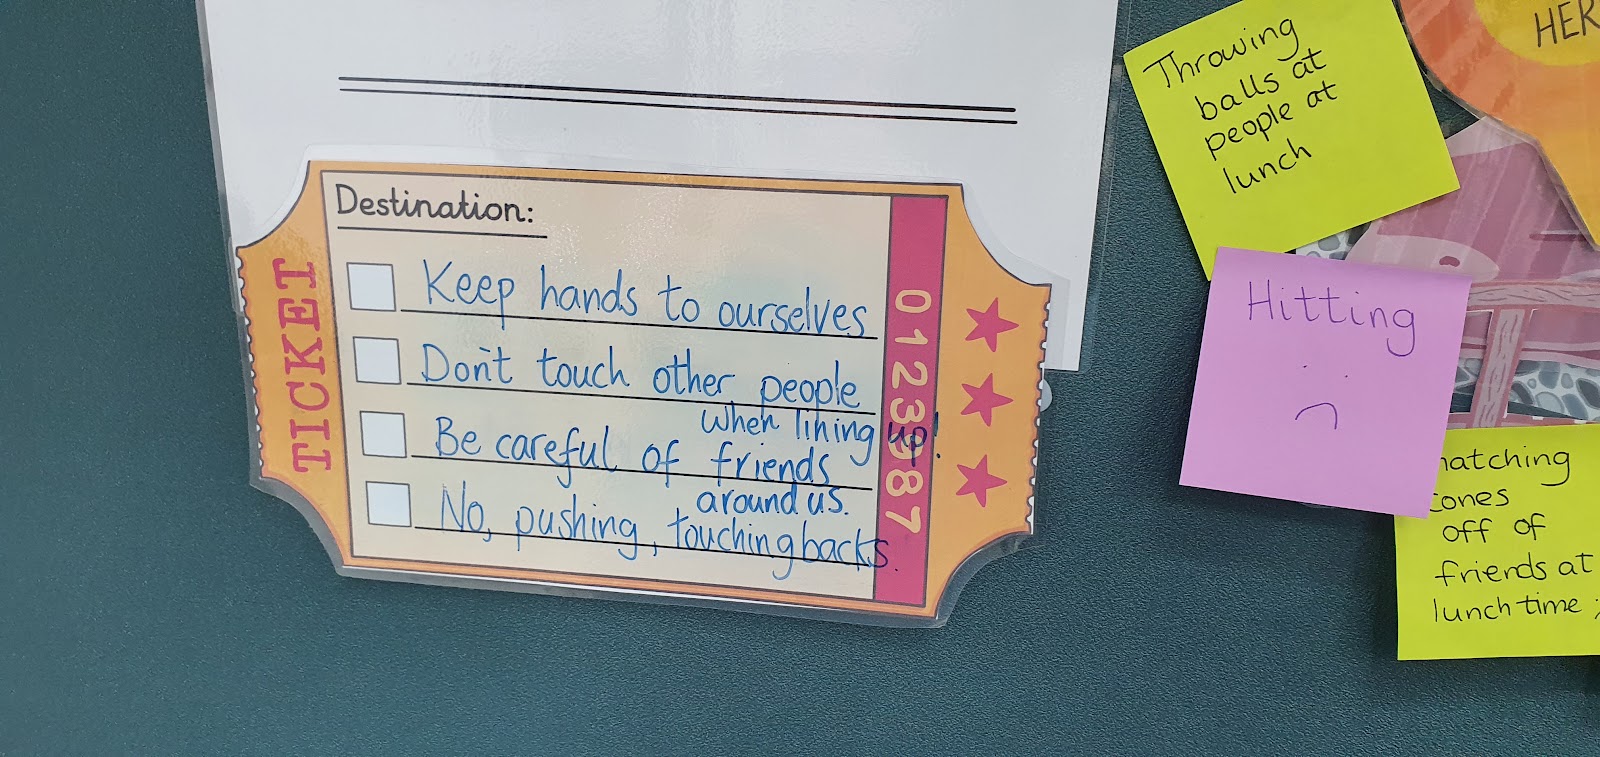 Destination:
Keep hands to ourselves
Don't touch other people
when lining up!
Be careful of friends
around us.
No, pushing, touching backs.
TICKET
01233987
Throwing
balls at
people at
lunch
Hitting
cones
off of
friends at
lunch time